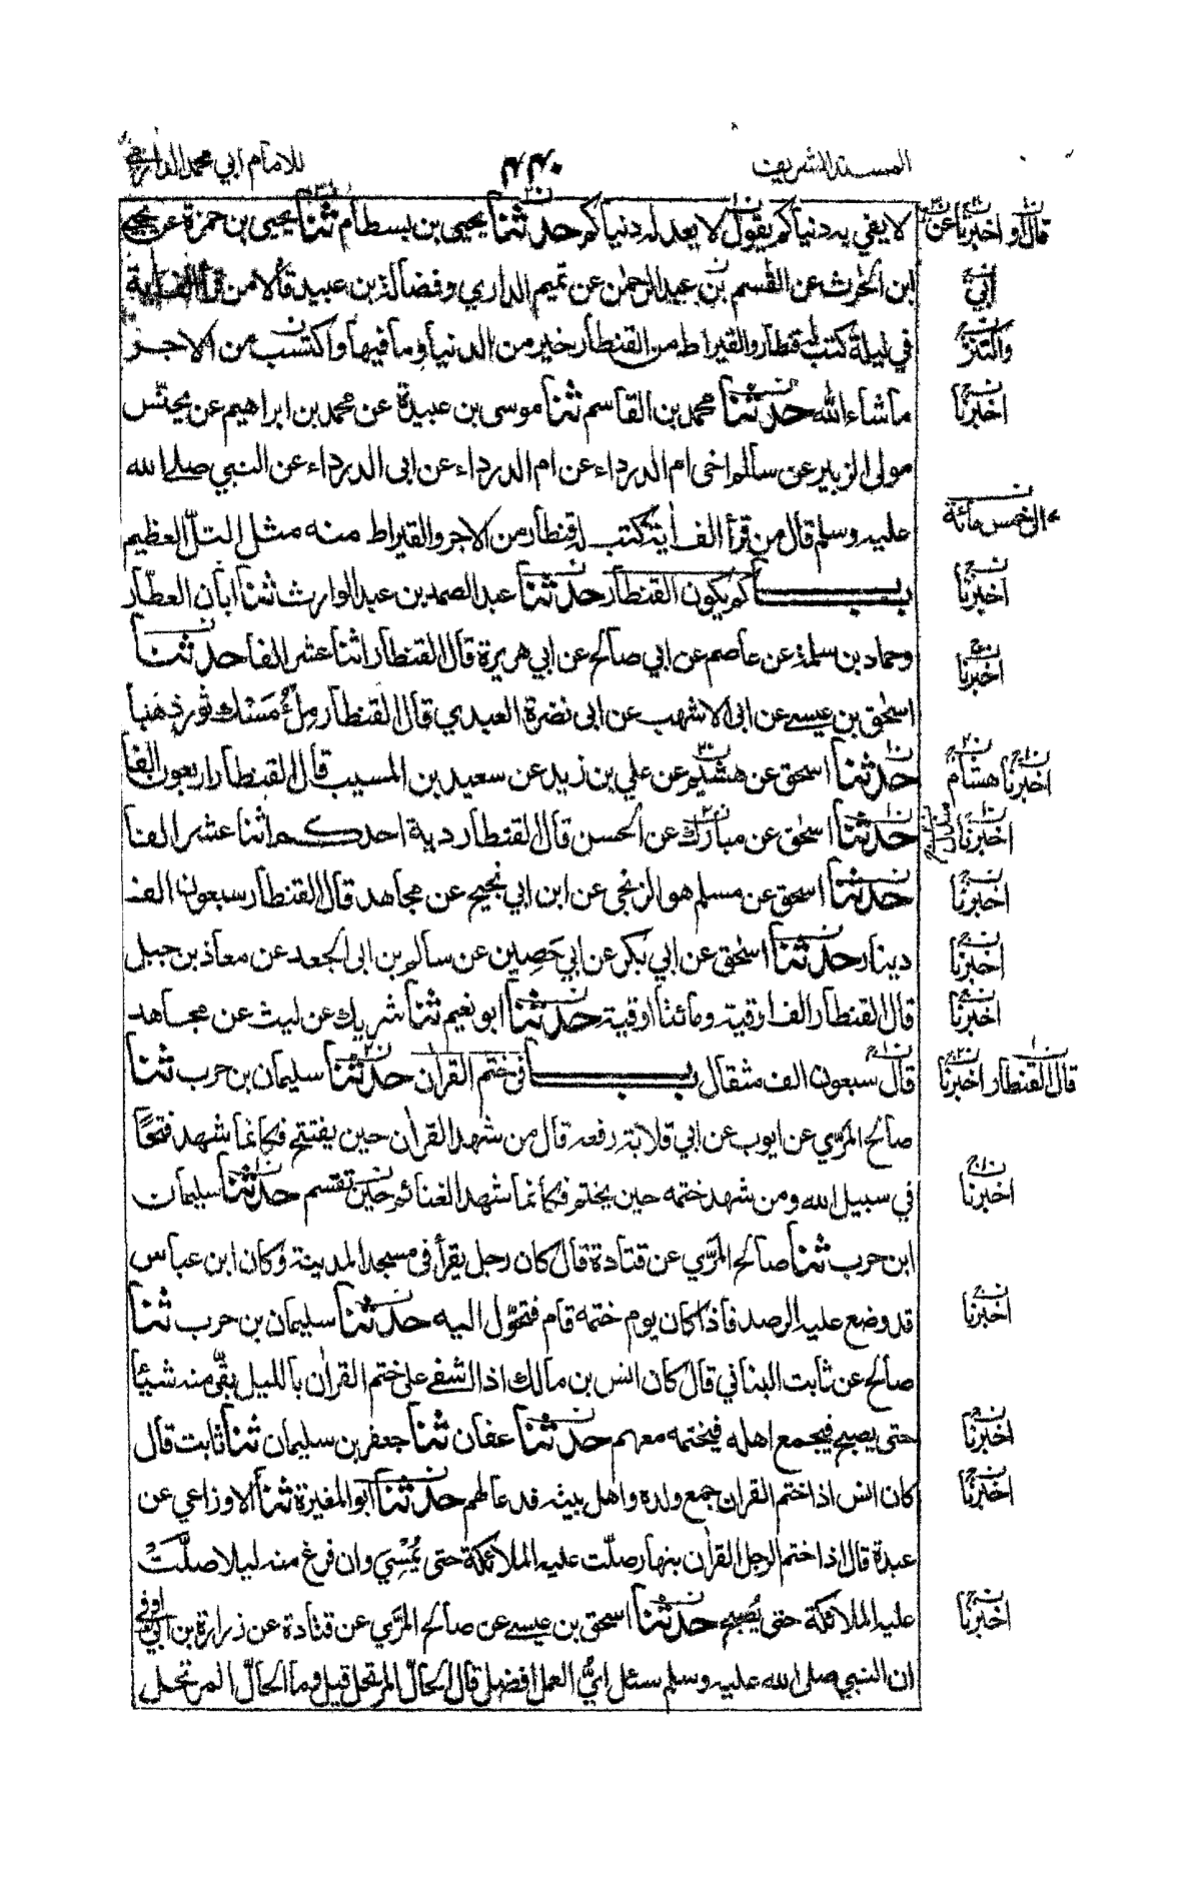 المسند الشريف ۴۴۰ للامام ابي محمد الدارمي
لا يفي به دنياكم يقول لا يعدله دنياكم حدثنا يحيى بن بسطام ثنا يحيى بن حمزة عن يحيى
ابن الحٰرث عن القٰسم بن عبد الرحمٰن عن تميم الداري وفضالة بن عبيد قالا من قرأ الف اية
في ليلة كتب له قنطار والقيراط من القنطار خير من الدنيا وما فيها واكتسب من الاجر
ما شاء الله حدثنا محمد بن القاسم ثنا موسى بن عبيدة عن محمد بن ابراهيم عن يحنّس
مولى الزبير عن سالم اخى ام الدرداء عن ام الدرداء عن ابى الدرداء عن النبي صلے الله
عليه وسلم قال من قرأ الف اية كتب له قنطار من الاجر والقيراط منه مثل التلّ العظيم
باب كم يكون القنطار حدثنا عبد الصمد بن عبد الوارث ثنا ابان العطّار
وحماد بن سلمة عن عاصم عن ابي صالح عن ابي هريرة قال القنطار اثنا عشر الفا حدثنا
اسحٰق بن عيسے عن ابى الاشهب عن ابى نضرة العبدي قال القنطار مِلْءُ مَسْك ثور ذهبا
حدثنا اسحٰق عن هشيم عن علي بن زيد عن سعيد بن المسيب قال القنطار اربعون الفا
حدثنا اسحٰق عن مبارك عن الحسن قال القنطار دية احدكم اثنا عشر الفا
حدثنا اسحٰق عن مسلم هو الزنجى عن ابن ابي نجيح عن مجاهد قال القنطار سبعون الف
دينار حدثنا اسحٰق عن ابي بكر عن ابي حَصِين عن سالم بن ابى الجعد عن معاذ بن جبل
قال القنطار الف اوقية ومائتا اوقية حدثنا ابو نعيم ثنا شريك عن ليث عن مجاهد
قال سبعون الف مثقال باب فى ختم القراٰن حدثنا سليمان بن حرب ثنا
صالح المرّي عن ايوب عن ابي قلابة رفعه قال من شهد القراٰن حين يفتتح فكانما شهد فتحًا
في سبيل الله ومن شهد ختمه حين يختم فكانما شهد الغنائم حين تقسم حدثنا سليمان
ابن حرب ثنا صالح المرّي عن قتادة قال كان رجل يقرأ فى مسجد المدينة وكان ابن عباس
قد وضع عليه الرصد فاذا كان يوم ختمه قام فتحوّل اليه حدثنا سليمان بن حرب ثنا
صالح عن ثابت البناني قال كان انس بن مالك اذا اشفے على ختم القراٰن بالليل بقّى منه شيئا
حتى يصبح فيجمع اهله فيختمه معهم حدثنا عفان ثنا جعفر بن سليمان ثنا ثابت قال
كان انس اذا ختم القراٰن جمع ولده واهل بيته فدعا لهم حدثنا ابو المغيرة ثنا الاوزاعي عن
عبدة قال اذا ختم الرجل القراٰن بنهار صلّت عليه الملائكة حتى يُمْسِيَ وان فرغ منه ليلا صلّتْ
عليه الملائكة حتى يُصبح حدثنا اسحٰق بن عيسے عن صالح المرّي عن قتادة عن زرارة بن ابي اوفى
ان النبي صلى الله عليه وسلم سئل ايُّ العمل افضل قال الحالّ المرتحل قيل وما الحالّ المرتحل
قال او اخبرنا عن
ابي
واكتنز
اخبرنا
الى خمس مائة
اخبرنا
اخبرنا
اخبرنا هشام
اخبرنا
اخبرنا
اخبرنا
اخبرنا
قال القنطار اخبرنا
اخبرنا
اخبرنا
اخبرنا
اخبرنا
اخبرنا